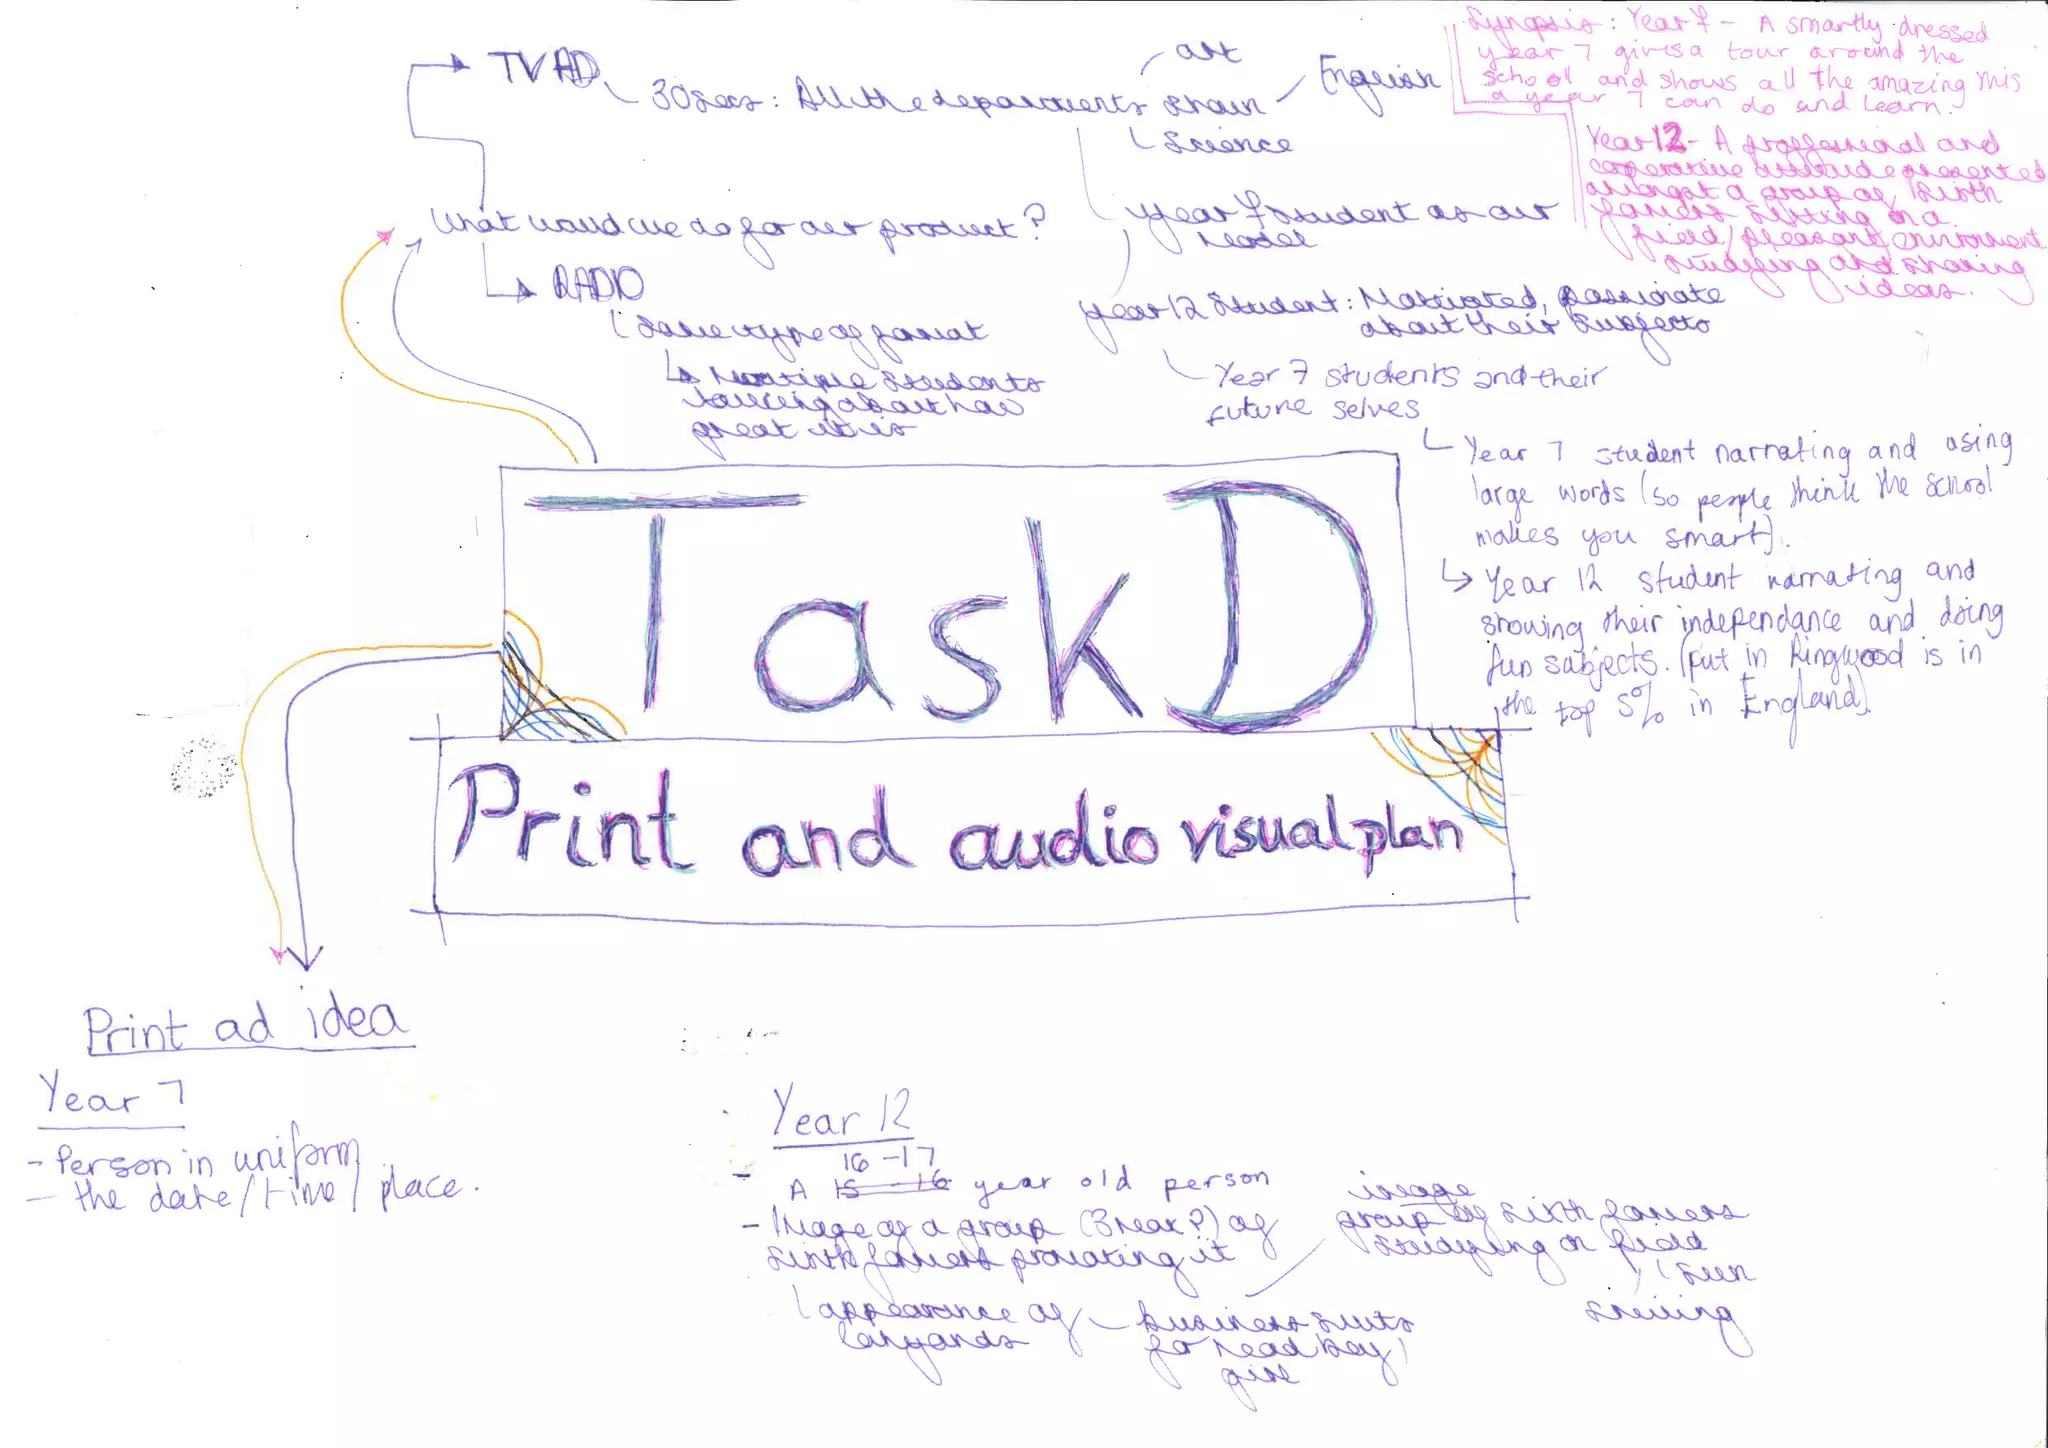 TV AD
30secs: All the departments shown
art
English
Science
Synopsis: Year 7 - A smartly dressed
year 7 gives a tour around the
school and shows all the amazing this
a year 7 can do and learn.
Year 12 - A professional and
cooperative attitude presented
amongst a group of sixth
formers sitting on a
field/pleasant environment
studying and sharing
ideas.
What would we do for our product?
Year 7 student as our
model
RADIO
Same type of format
Multiple students
voicing about how
great it is
year 12 Student: Motivated, passionate
about their subjects
Year 7 students and their
future selves
Year 7 student narrating and using
large words (so people think the school
makes you smart).
Year 12 student narrating and
showing their independance and doing
fun subjects. (put in Ringwood is in
the top 5% in England)
Task D
Print and audio visual plan
Print ad idea
Year 7
- Person in uniform
- the date/time/place.
Year 12
16-17
- A 15-16 year old person
- Image of a group (3 max?) of
sixth formers promoting it
appearance of
lanyards
business suits
for head boy/
girl
image
group of sixth formers
studying on field
sun
smiling